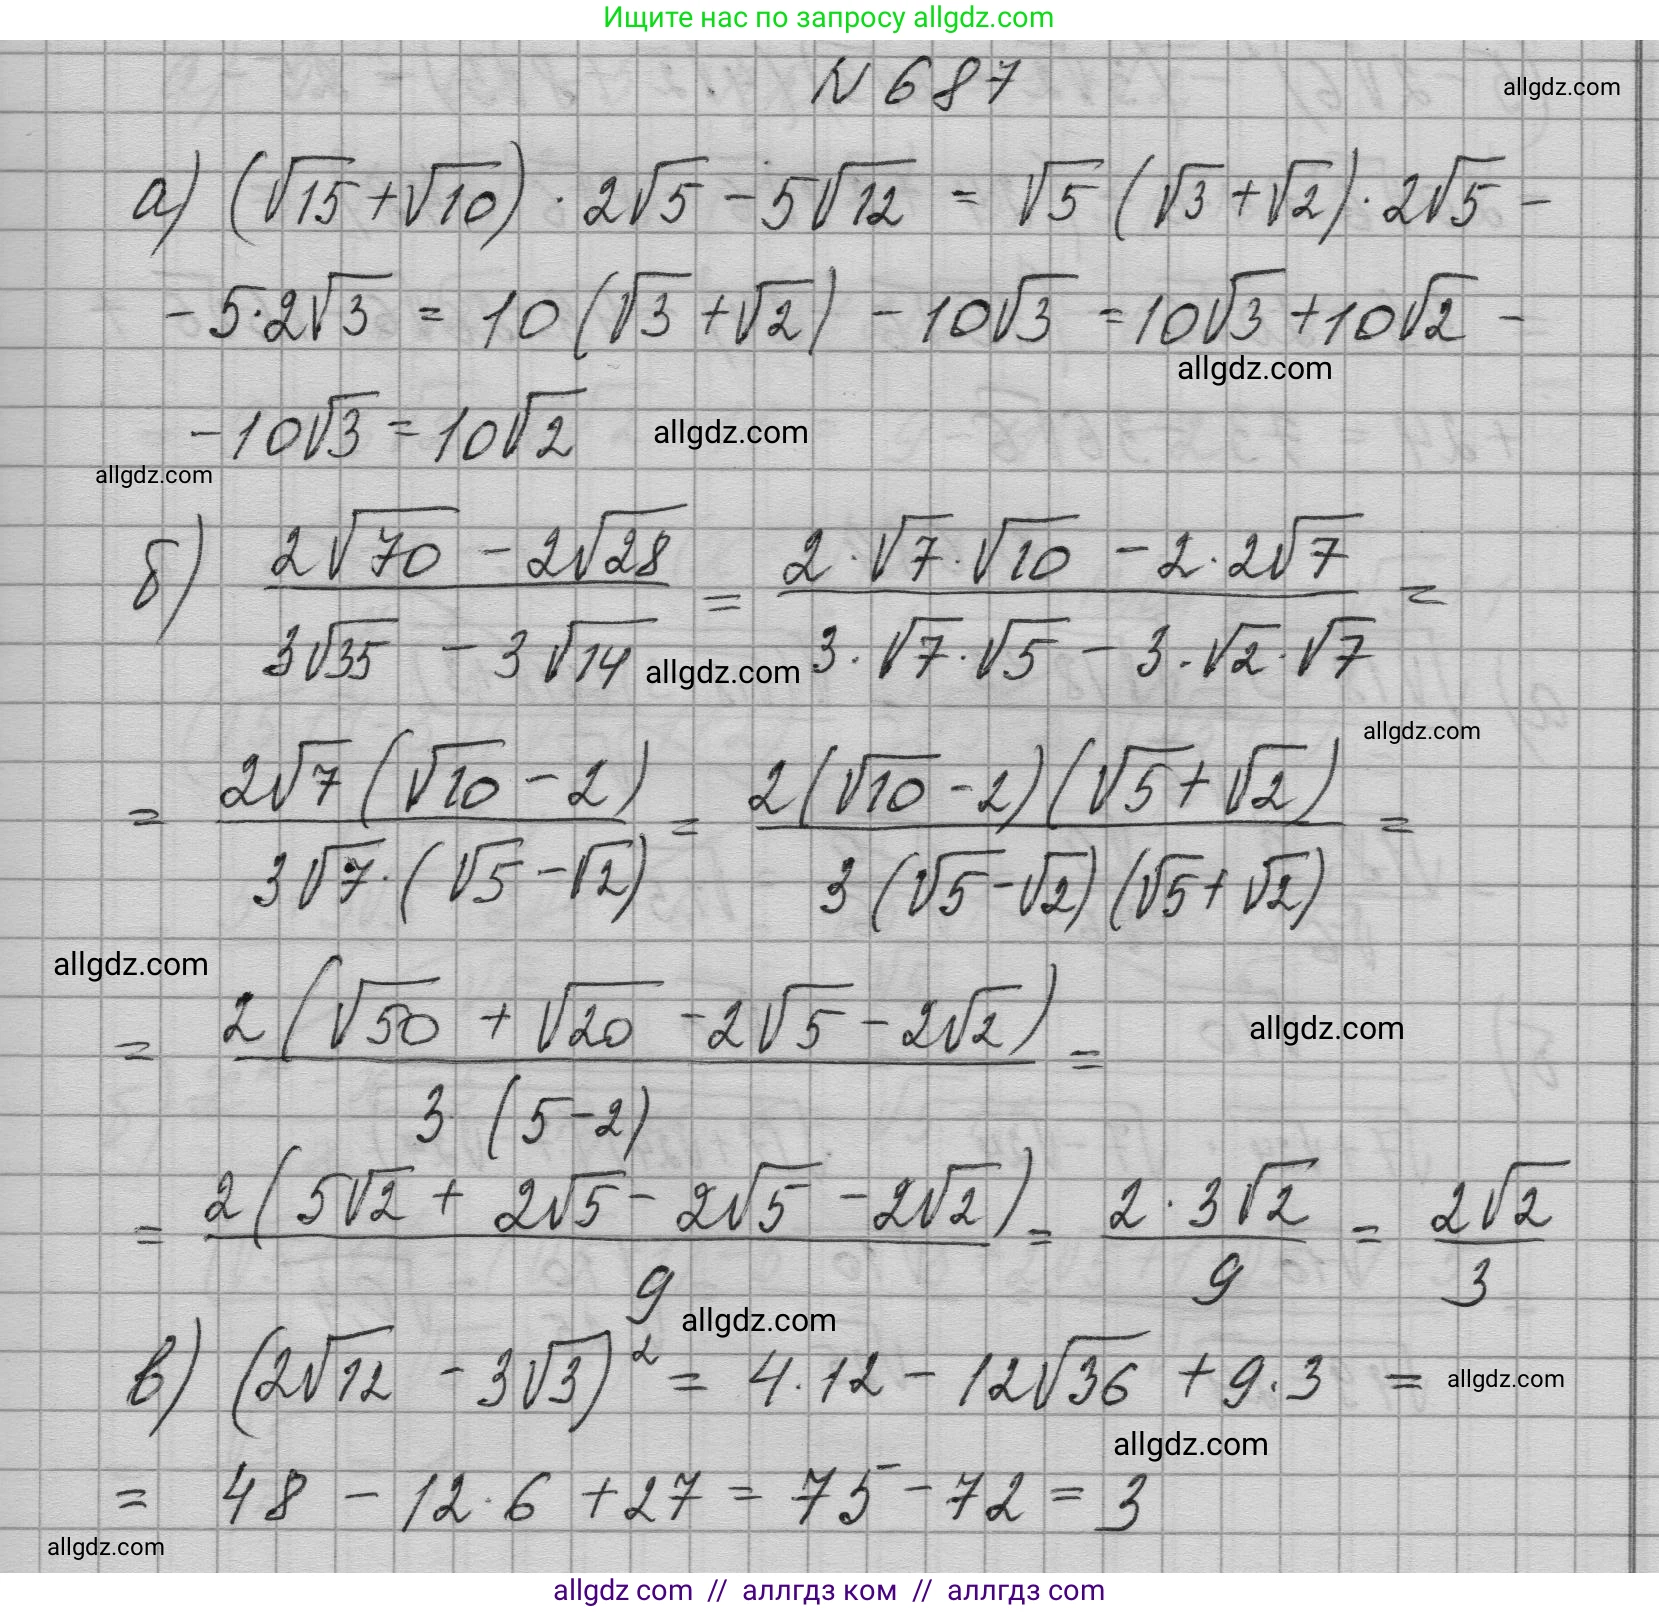 Ищите нас по запросу allgdz.com
N 687
allgdz.com
а) (√15 + √10) · 2√5 − 5√12 = √5 (√3 + √2) · 2√5 −
− 5·2√3 = 10 (√3 + √2) − 10√3 = 10√3 + 10√2 −
allgdz.com
− 10√3 = 10√2
allgdz.com
allgdz.com
б) (2√70 − 2√28)/(3√35 − 3√14) = (2·√7·√10 − 2·2√7)/(3·√7·√5 − 3·√2·√7) =
allgdz.com
allgdz.com
= (2√7 (√10 − 2))/(3√7·(√5 − √2)) = (2(√10 − 2)(√5 + √2))/(3(√5 − √2)(√5 + √2)) =
allgdz.com
= (2(√50 + √20 − 2√5 − 2√2))/(3·(5 − 2)) =
allgdz.com
= (2(5√2 + 2√5 − 2√5 − 2√2))/9 = (2·3√2)/9 = (2√2)/3
allgdz.com
в) (2√12 − 3√3)² = 4·12 − 12√36 + 9·3 =
allgdz.com
allgdz.com
= 48 − 12·6 + 27 = 75 − 72 = 3
allgdz.com
allgdz com // аллгдз ком // аллгдз com